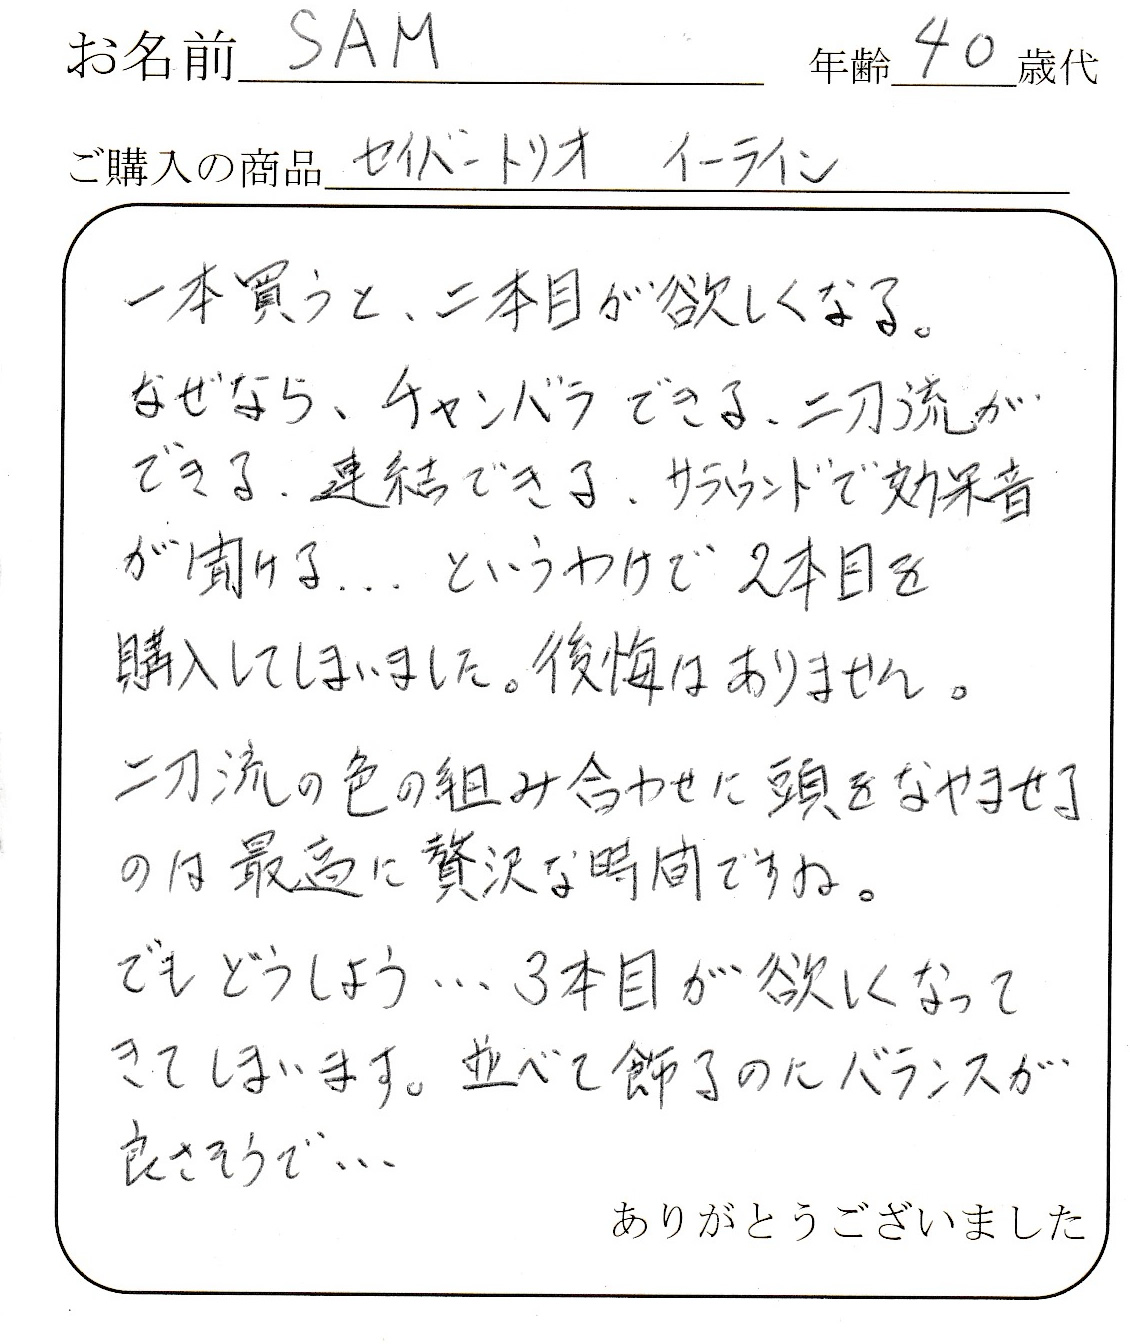 お名前 SAM 年齢 40 歳代
ご購入の商品 セイバートリオ イーライン
一本買うと、二本目が欲しくなる。
なぜなら、チャンバラできる、二刀流が
できる、連結できる、サラウンドで効果音
が聞ける... というわけで 2本目を
購入してしまいました。後悔はありません。
二刀流の色の組み合わせに頭をなやませる
のは最高に贅沢な時間ですね。
でもどうしよう... 3本目が欲しくなって
きてしまいます。並べて飾るのにバランスが
良さそうで...
ありがとうございました